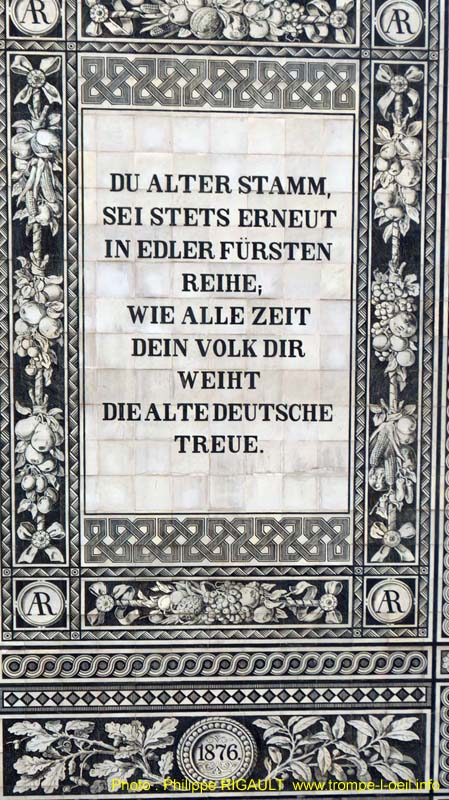 AR AR
DU ALTER STAMM,
SEI STETS ERNEUT
IN EDLER FÜRSTEN
REIHE;
WIE ALLE ZEIT
DEIN VOLK DIR
WEIHT
DIE ALTE DEUTSCHE
TREUE.
AR AR
1876
Photo : Philippe RIGAULT www.trompe-l-oeil.info